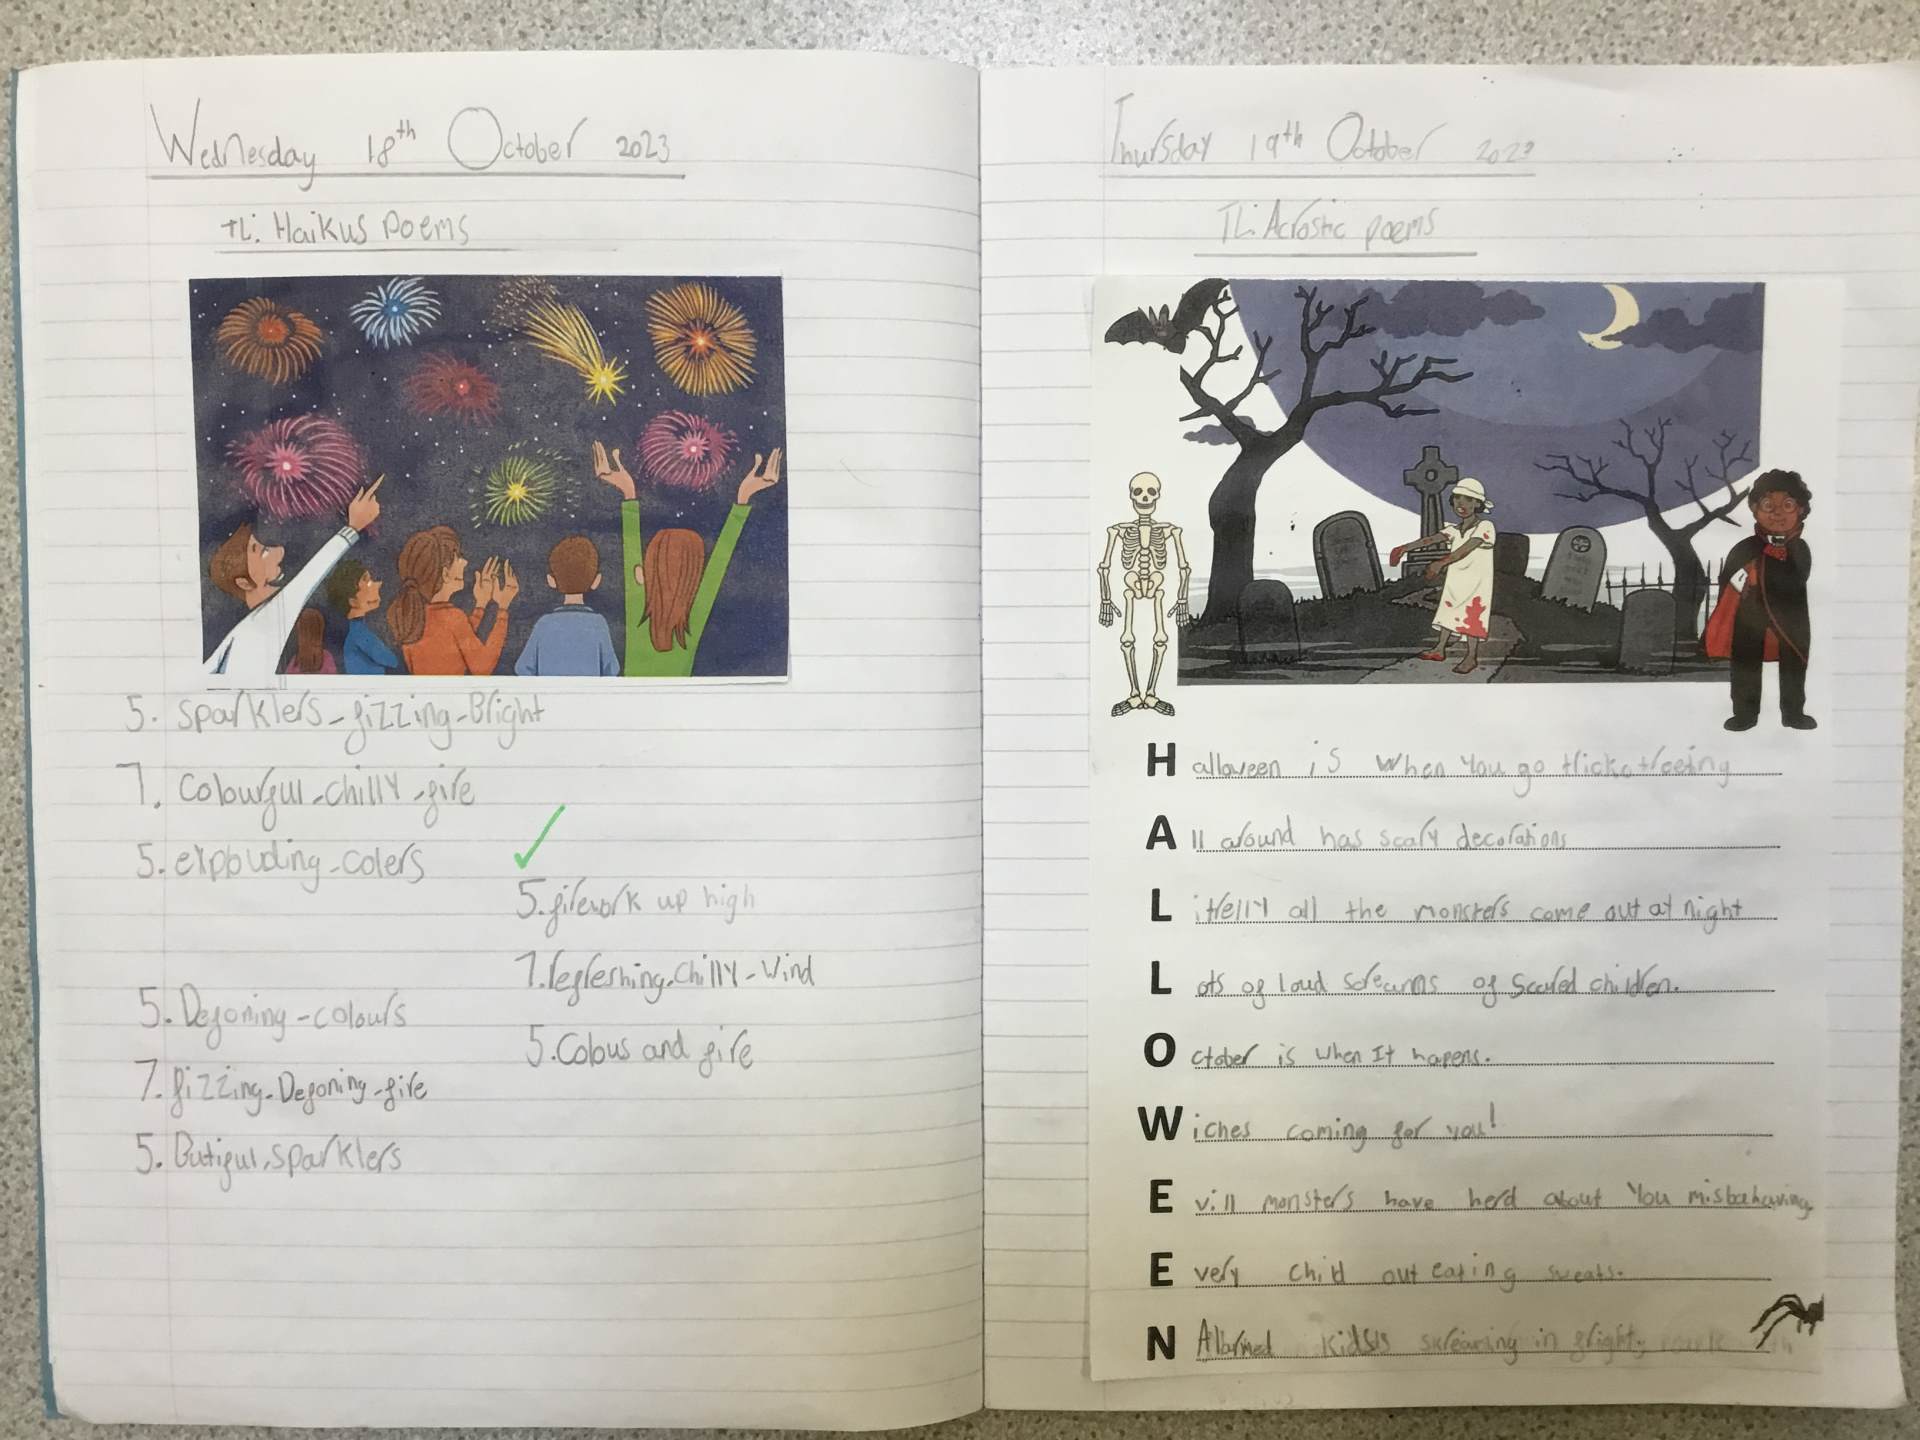 Wednesday 18th October 2023
TLi. Haikus Poems
5. sparklers-fizzing-Bright
7. Colourful-chilly-fire
5. explouding-colers
5. firework up high
7. refreshing-Chilly-Wind
5. Colous and fire
5. Defoning-colours
7. fizzing-Defoning-fire
5. Butiful, sparklers
Thursday 19th October 2023
TLi Acrostic poems
Halloween is when you go trickotreeting
All around has scary decorations
Litrelly all the monsters come out at night
Lots of loud screams of Scared children.
October is when It hapens.
Wiches coming for you!
Evill monsters have herd about You misbahaving.
Every child out eating sweats.
N Alarmed kids skreaming in fright.